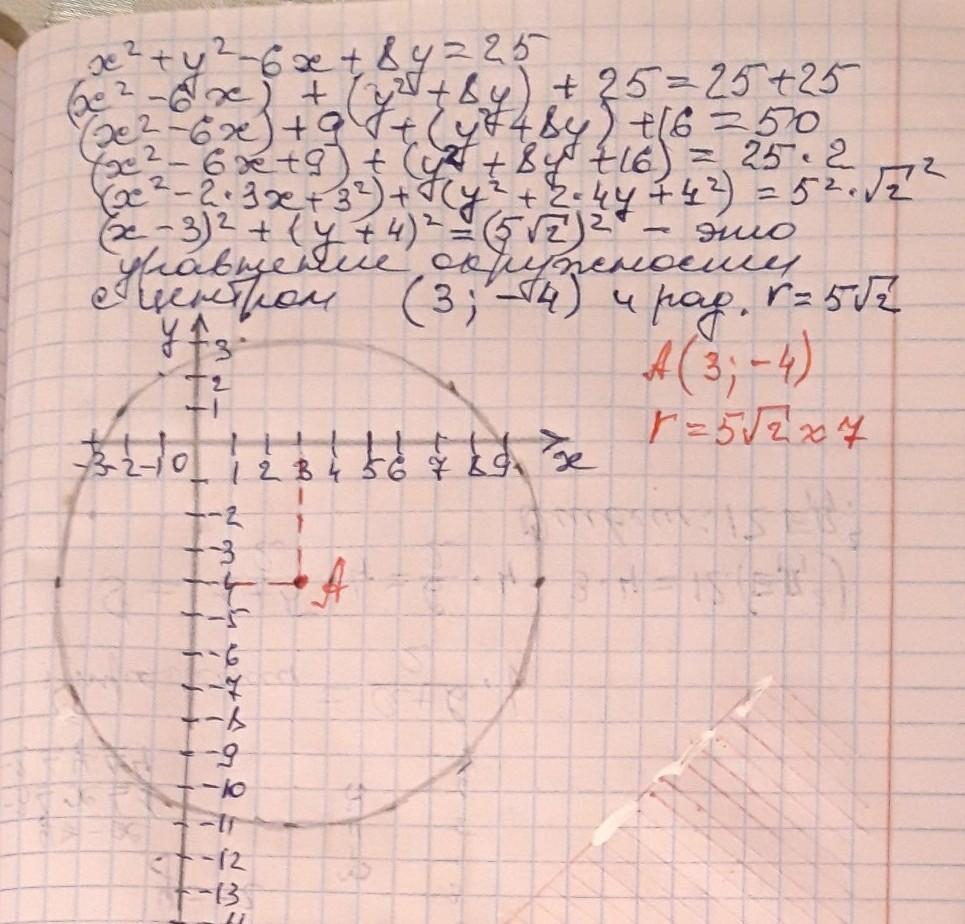 x² + y² - 6x + 8y = 25
(x² - 6x) + (y² + 8y) + 25 = 25 + 25
(x² - 6x) + 9 + (y² + 8y) + 16 = 50
(x² - 6x + 9) + (y² + 8y + 16) = 25 · 2
(x² - 2·3x + 3²) + (y² + 2·4y + 4²) = 5² · √2²
(x - 3)² + (y + 4)² = (5√2)² - это
уравнение окружности
с центром (3; -4) и рад. r = 5√2
A(3; -4)
r = 5√2 ≈ 7
y
3
2
1
-3 -2 -1 0 1 2 3 4 5 6 7 8 9 x
-2
-3
-4 A
-5
-6
-7
-8
-9
-10
-11
-12
-13